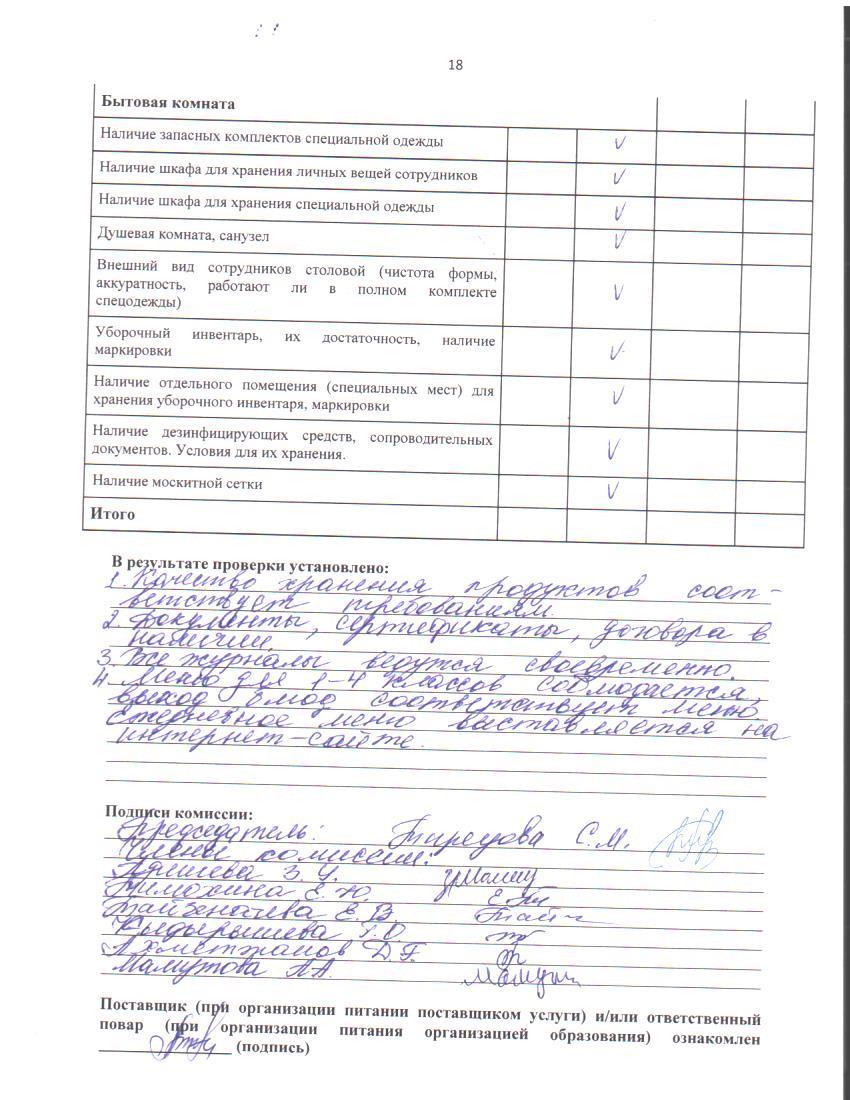 18
Бытовая комната
Наличие запасных комплектов специальной одежды
Наличие шкафа для хранения личных вещей сотрудников
Наличие шкафа для хранения специальной одежды
Душевая комната, санузел
Внешний вид сотрудников столовой (чистота формы,
аккуратность, работают ли в полном комплекте
спецодежды)
Уборочный инвентарь, их достаточность, наличие
маркировки
Наличие отдельного помещения (специальных мест) для
хранения уборочного инвентаря, маркировки
Наличие дезинфицирующих средств, сопроводительных
документов. Условия для их хранения.
Наличие москитной сетки
Итого
В результате проверки установлено:
1. Качество хранения продуктов соот-
ветствует требованиям
2. Документы, сертификаты, договора в
наличии.
3. Все журналы ведутся своевременно.
4. Меню для 1-4 классов соблюдается,
выход блюд соответствует меню.
Ежедневное меню выставляется на
интернет-сайте.
Подписи комиссии:
Председатель: С.М.
Члены комиссии:
З. У.
Тимохина Е. Ю.
Е. В.
Кыдырышева Г. О.
Ахметжанов Д. Г.
Мамутова А.А.
Поставщик (при организации питании поставщиком услуги) и/или ответственный
повар (при организации питания организацией образования) ознакомлен
(подпись)